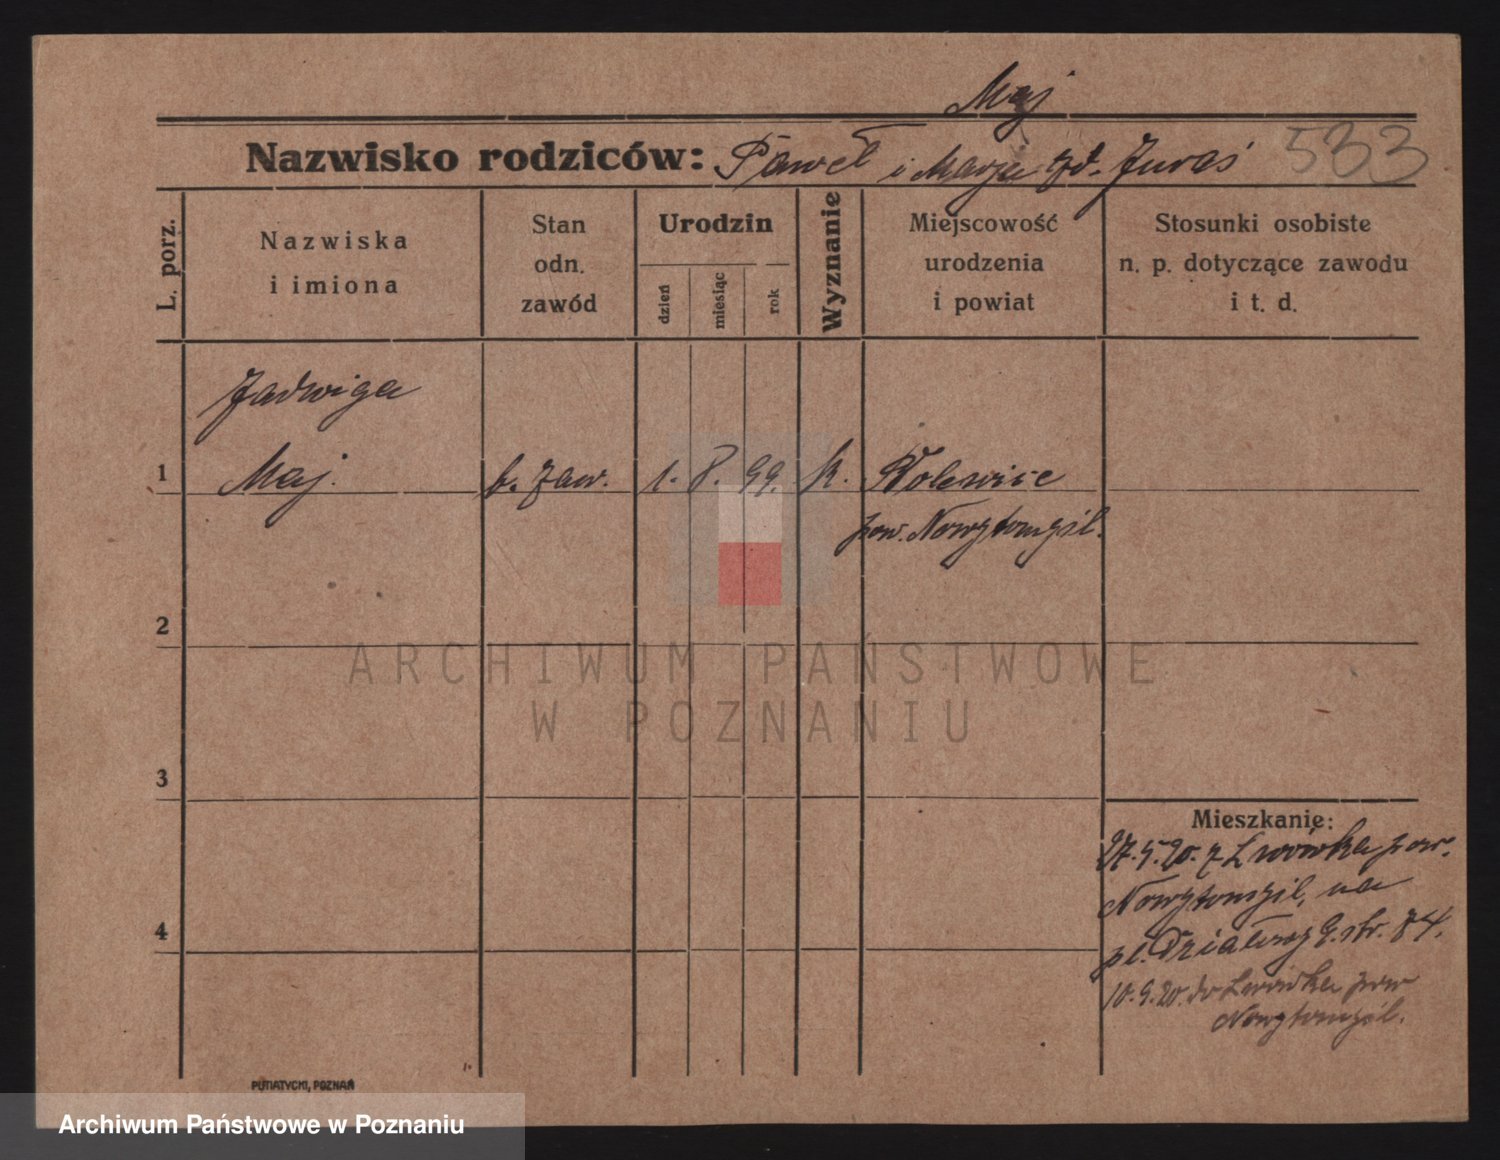 Maj
Nazwisko rodziców: Paweł i Marja zd. Juraś 533
L. porz.
Nazwiska
i imiona
Stan
odn.
zawód
Urodzin
dzień
miesiąc
rok
Wyznanie
Miejscowość
urodzenia
i powiat
Stosunki osobiste
n. p. dotyczące zawodu
i t. d.
Jadwiga
1 Maj. b. zaw. 1. 8. 99. k.
pow. Nowytomyśl.
2
ARCHIWUM PAŃSTWOWE
W POZNANIU
3
Mieszkanie:
27.5.20. z Lwówka pow.
Nowytomyśl, na
pl. Działowy 9. str. 84.
4
10.9.20. do Lwówka pow
Nowytomyśl.
PUTIATYCKI, POZNAŃ
Archiwum Państwowe w Poznaniu